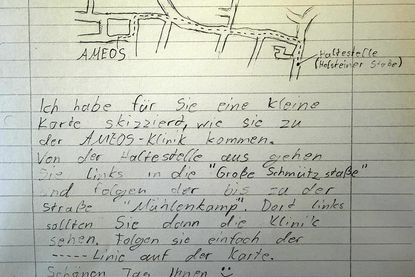 AMEOS
Haltestelle
(Holsteiner Staße)
Ich habe für Sie eine kleine
Karte skizzierd, wie sie zu
der AMEOS-Klinik kommen.
Von der Haltestelle aus giehen
Sie Links in die "Große Schmützstaße"
und folgen der bis zu der
Straße "Mühlenkamp". Dort links
sollten Sie dann die Klinik
sehen. Folgen sie einfach der
----- Linie auf der Karte.
Schönen Tag Ihnen